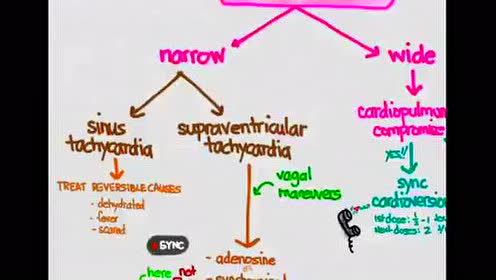 narrow
wide
sinus
tachycardia
supraventricular
tachycardia
cardiopulmon
compromise
YES!!
TREAT REVERSIBLE CAUSES
- dehydrated
- fever
- scared
vagal
maneuvers
sync
cardioversion
1st dose: ½-1
next doses: 2
SYNC
- adenosine
here not